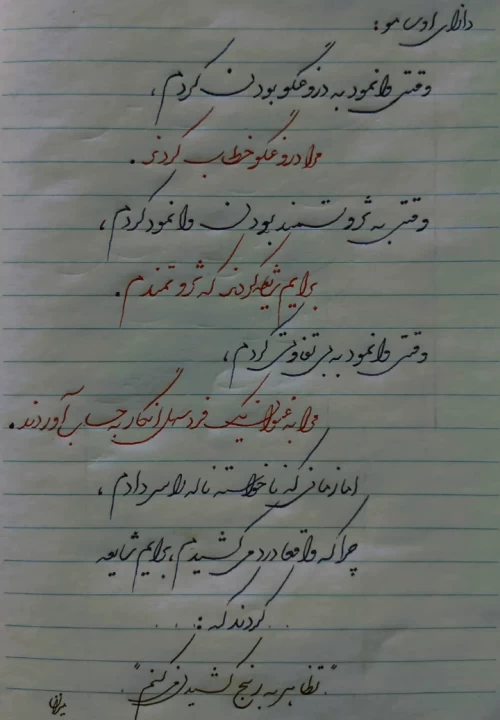 دازای اوسامو:
وقتی وانمود به دروغگو بودن کردم،
مرا دروغگو خطاب کردند.
وقتی به ثروتمند بودن وانمود کردم،
برایم شایعه کردند که ثروتمندم.
وقتی وانمود به بی تفاوتی کردم،
مرا به عنوان یک فرد سهل انگار به حساب آوردند.
اما زمانی که ناخواسته ناله را سر دادم،
چرا که واقعا درد می کشیدم، برایم شایعه
کردند که: ....
"تظاهر به رنج کشیدن می کنم".